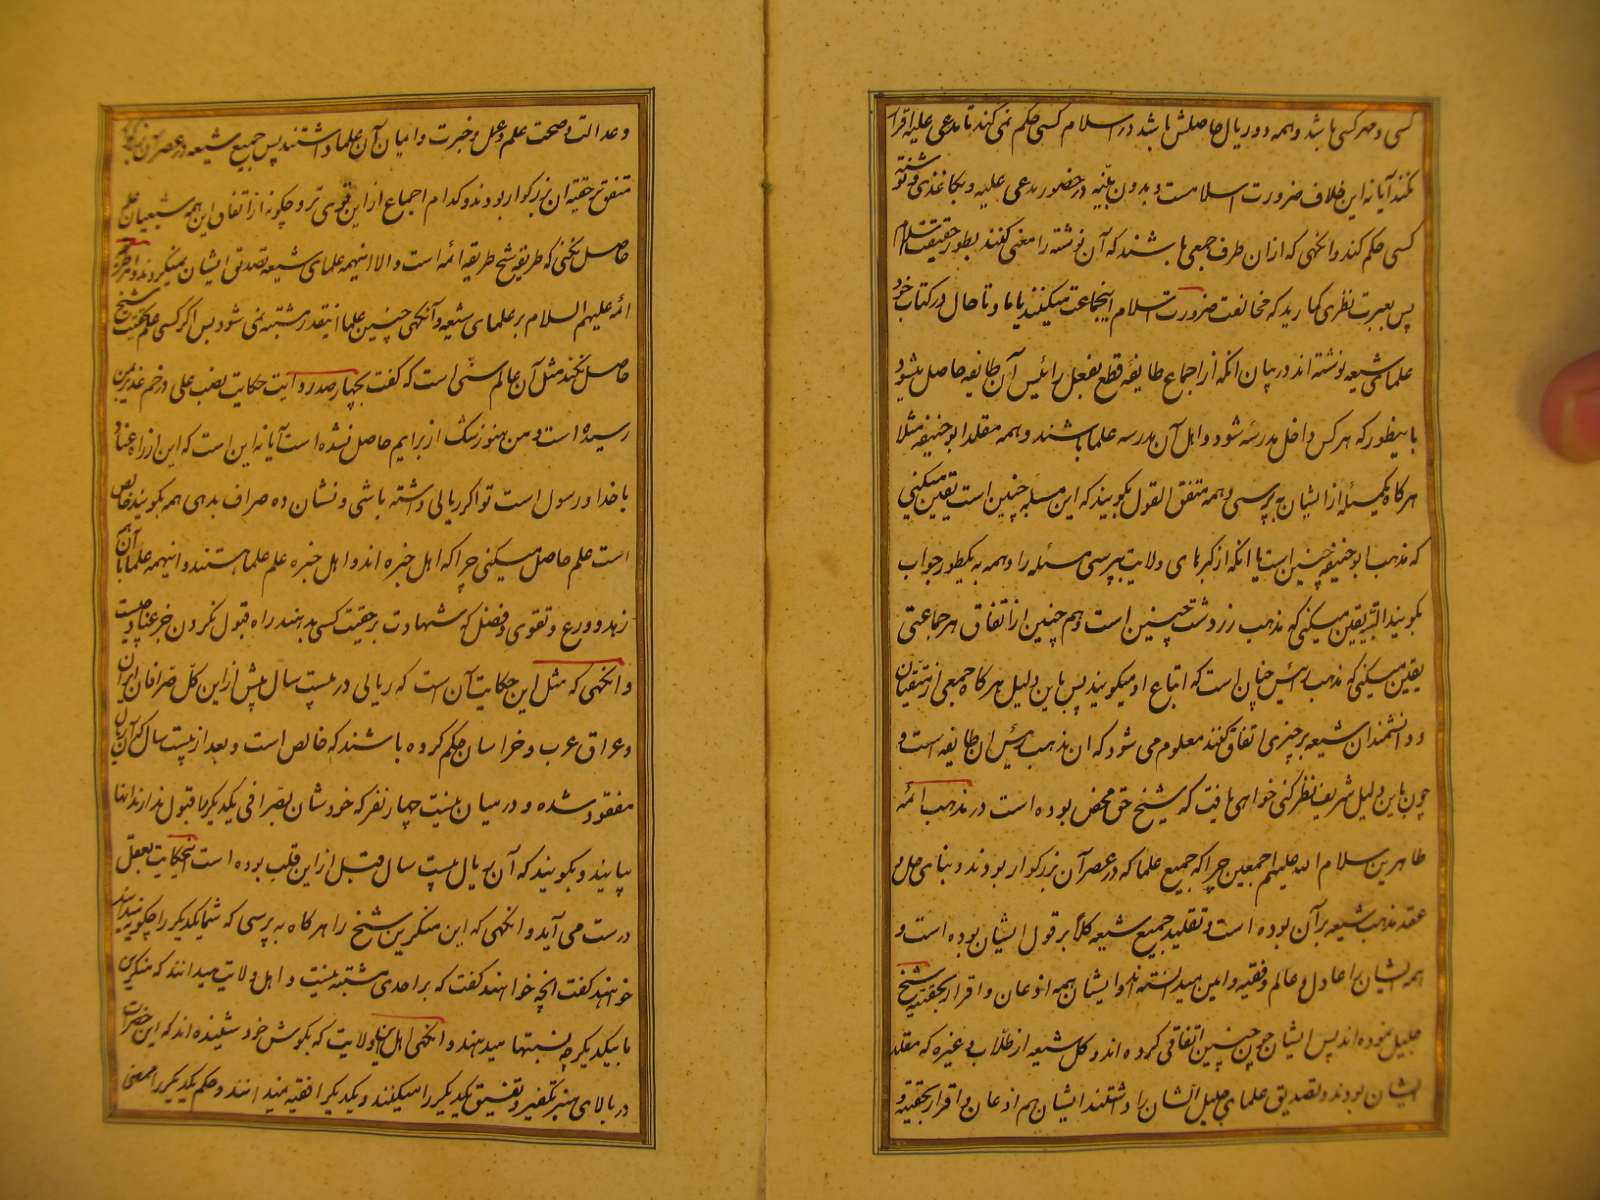 کسی و مهر کسی باشد و همه دو ریال حاصلش باشد در اسلام کسی حکم نمی کند تا مدعی علیه اقرار
نکند آیا نه این خلاف ضرورت اسلامست و بدون بینه در حضور مدعی علیه و بکاغذی و نوشته
کسی حکم کند و انگهی که ازان طرف جمعی باشند که آن نوشته را معنی کنند بطور حقیقت اسلام
پس بعبرت نظری کمارید که مخالفت ضرورت اسلام اینجماعت میکنند یا ما و تا حال در کتاب خود
علمای شیعه نوشته اند در بیان انکه از اجماع طایفه قطع بفعل رائیس آن طایفه حاصل میشود
باینطور که هر کس داخل مدرسه شود و اهل آن مدرسه علما باشند و همه مقلد ابوحنیفه مثلا
هرکاه یکمسئله از ایشان به پرسی و همه متفق القول بگویند که این مسئله چنین است یقین میکنی
که مذهب ابو حنیفه چنین است یا انکه از کبرهای ولایت بپرسی مسئله را و همه به یکطور جواب
بکویند البته یقین میکنی که مذهب زردشت چنین است و هم چنین از اتفاق هر جماعتی
یقین میکنی که مذهب رئیس چنان است که اتباع او میکویند پس باین دلیل هر کاه جمعی از متقیان
و دانشمندان شیعه بر چیزی اتفاق کنند معلوم می شود که ان مذهب رئیس ان طایفه است و
چون باین دلیل شریف نظر کنی خواهی یافت که شیخ حق محض بوده است در مذهب ائمه
طاهرین سلام الله علیهم اجمعین چرا که جمیع علما که در عصر آن بزرکوار بودند و بنای حل و
عقد مذهب شیعه بر آن بوده است و تقلید جمیع شیعه کلا بر قول ایشان بوده است و
همه ایشان را عادل و عالم و فقیه و امین میدانسته اند و ایشان همه اذعان و اقرار بحقیت شیخ
جلیل نموده اند پس ایشان چون چنین اتفاقی کرده اند و کل شیعه از طلاب و غیره که مقلد
ایشان بودند و تصدیق علمای جلیل الشان را داشتند ایشان هم اذعان و اقرار بحقیقه و
و عدالت و صحت علم و عمل و خبرت و ایمان آن علما داشتند پس جمیع شیعه در عصر آن
متفق بر حقیه ان بزرکوار بودند و کدام اجماع از این قوی تر و چکونه از اتفاق این همه شیعیان علم
حاصل نکنی که طریقه شیخ طریقه ائمه است و الا اینهمه علمای شیعه تصدیق ایشان نمیکردند و
ائمه علیهم السلام بر علمای شیعه و آنکهی چنین علما اینقدر مشتبه نمی شود پس اکر کسی علم بحقیت شیخ
حاصل نکند مثل آن عالم سنی است که گفت بچهار صد روایت حکایت نصب علی در خم غدیر بمن
رسیده است و من هنوز شک از برایم حاصل نشده است آیا نه این است که این از راه عناد
با خدا و رسول است تو اکر ریالی داشته باشی و نشان ده صراف بدهی همه بکویند خالص
است علم حاصل میکنی چرا که اهل خبره اند و اهل خبره علم علما هستند و اینهمه علما با آن همه
زهد و ورع و تقوی و فضل که شهادت بر حقیت کسی بدهند راه قبول نکردن جز عناد چیست
و انکهی که مثل این حکایت آن است که ریالی در بیست سال پیش از این کل صرافان ایران
و عراق عرب و خراسان حکم کرده باشند که خالص است و بعد از بیست سال که آن ریال
مفقود شده و در میان نیست چهار نفر که خودشان بصرافی یکدیگر را قبول ندارند انها
بیایند و بکویند که آن ریال بیست سال قبل از این قلب بوده است اینحکایت بعقل
درست می آید و انکهی که این منکرین شیخ را هر کاه به پرسی که شما یکدیگر را چکونه میدانید
خواهند کفت انچه خواهند کفت که بر احدی مشتبه نیست و اهل ولایت میدانند که منکرین
ما بیکدیگر چه نسبتها میدهند و انکهی اهل این ولایت که بکوش خود شنیده اند که این حضرات
در بالای منبر تکفیر و تفسیق یکدیکر را میکنند و یکدیکر را فقیه نمیدانند و حکم یکدیکر را ممضی